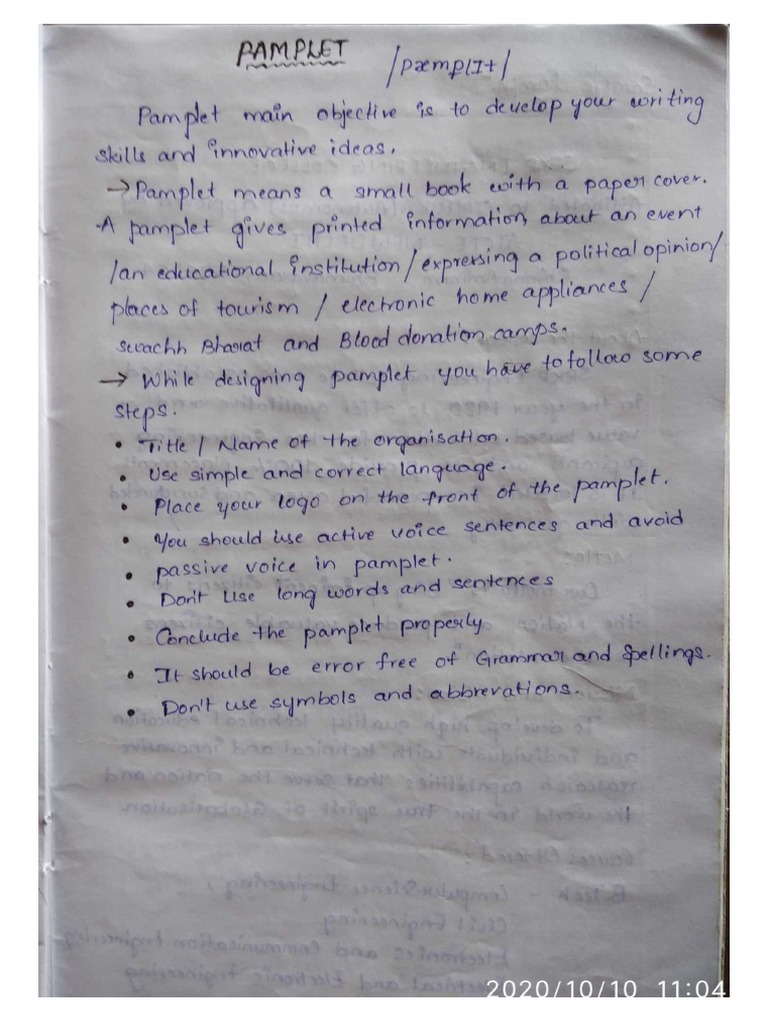 PAMPLET /pæmplIt/
Pamplet main objective is to develop your writing
skills and innovative ideas.
→ Pamplet means a small book with a paper cover.
A pamplet gives printed information about an event
/an educational institution/expressing a political opinion/
places of tourism / electronic home appliances /
swachh Bharat and Blood donation camps.
→ While designing pamplet you have to follow some
steps.
• Title / Name of the organisation.
• Use simple and correct language.
• Place your logo on the front of the pamplet.
• You should use active voice sentences and avoid
• passive voice in pamplet.
• Don't use long words and sentences
• Conclude the pamplet properly
• It should be error free of Grammar and Spellings.
• Don't use symbols and abbrevations.
2020/10/10 11:04